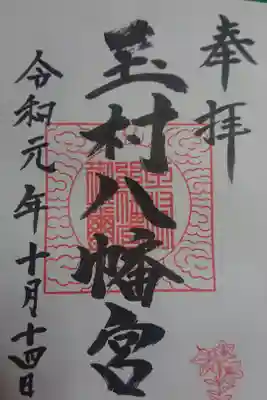 奉拝
玉村八幡宮
令和元年十月十四日